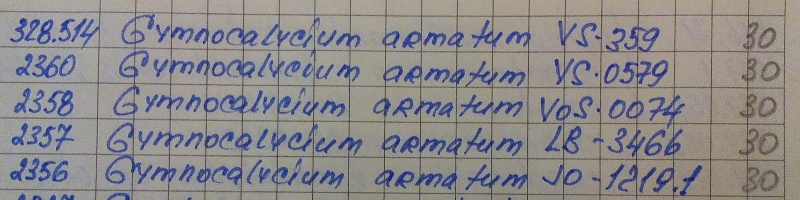 328.514 Gymnocalycium armatum VS-359 30
2360 Gymnocalycium armatum VS.0579 30
2358 Gymnocalycium armatum VoS.0074 30
2357 Gymnocalycium armatum LB-3466 30
2356 Gymnocalycium armatum JO-1219.1 30